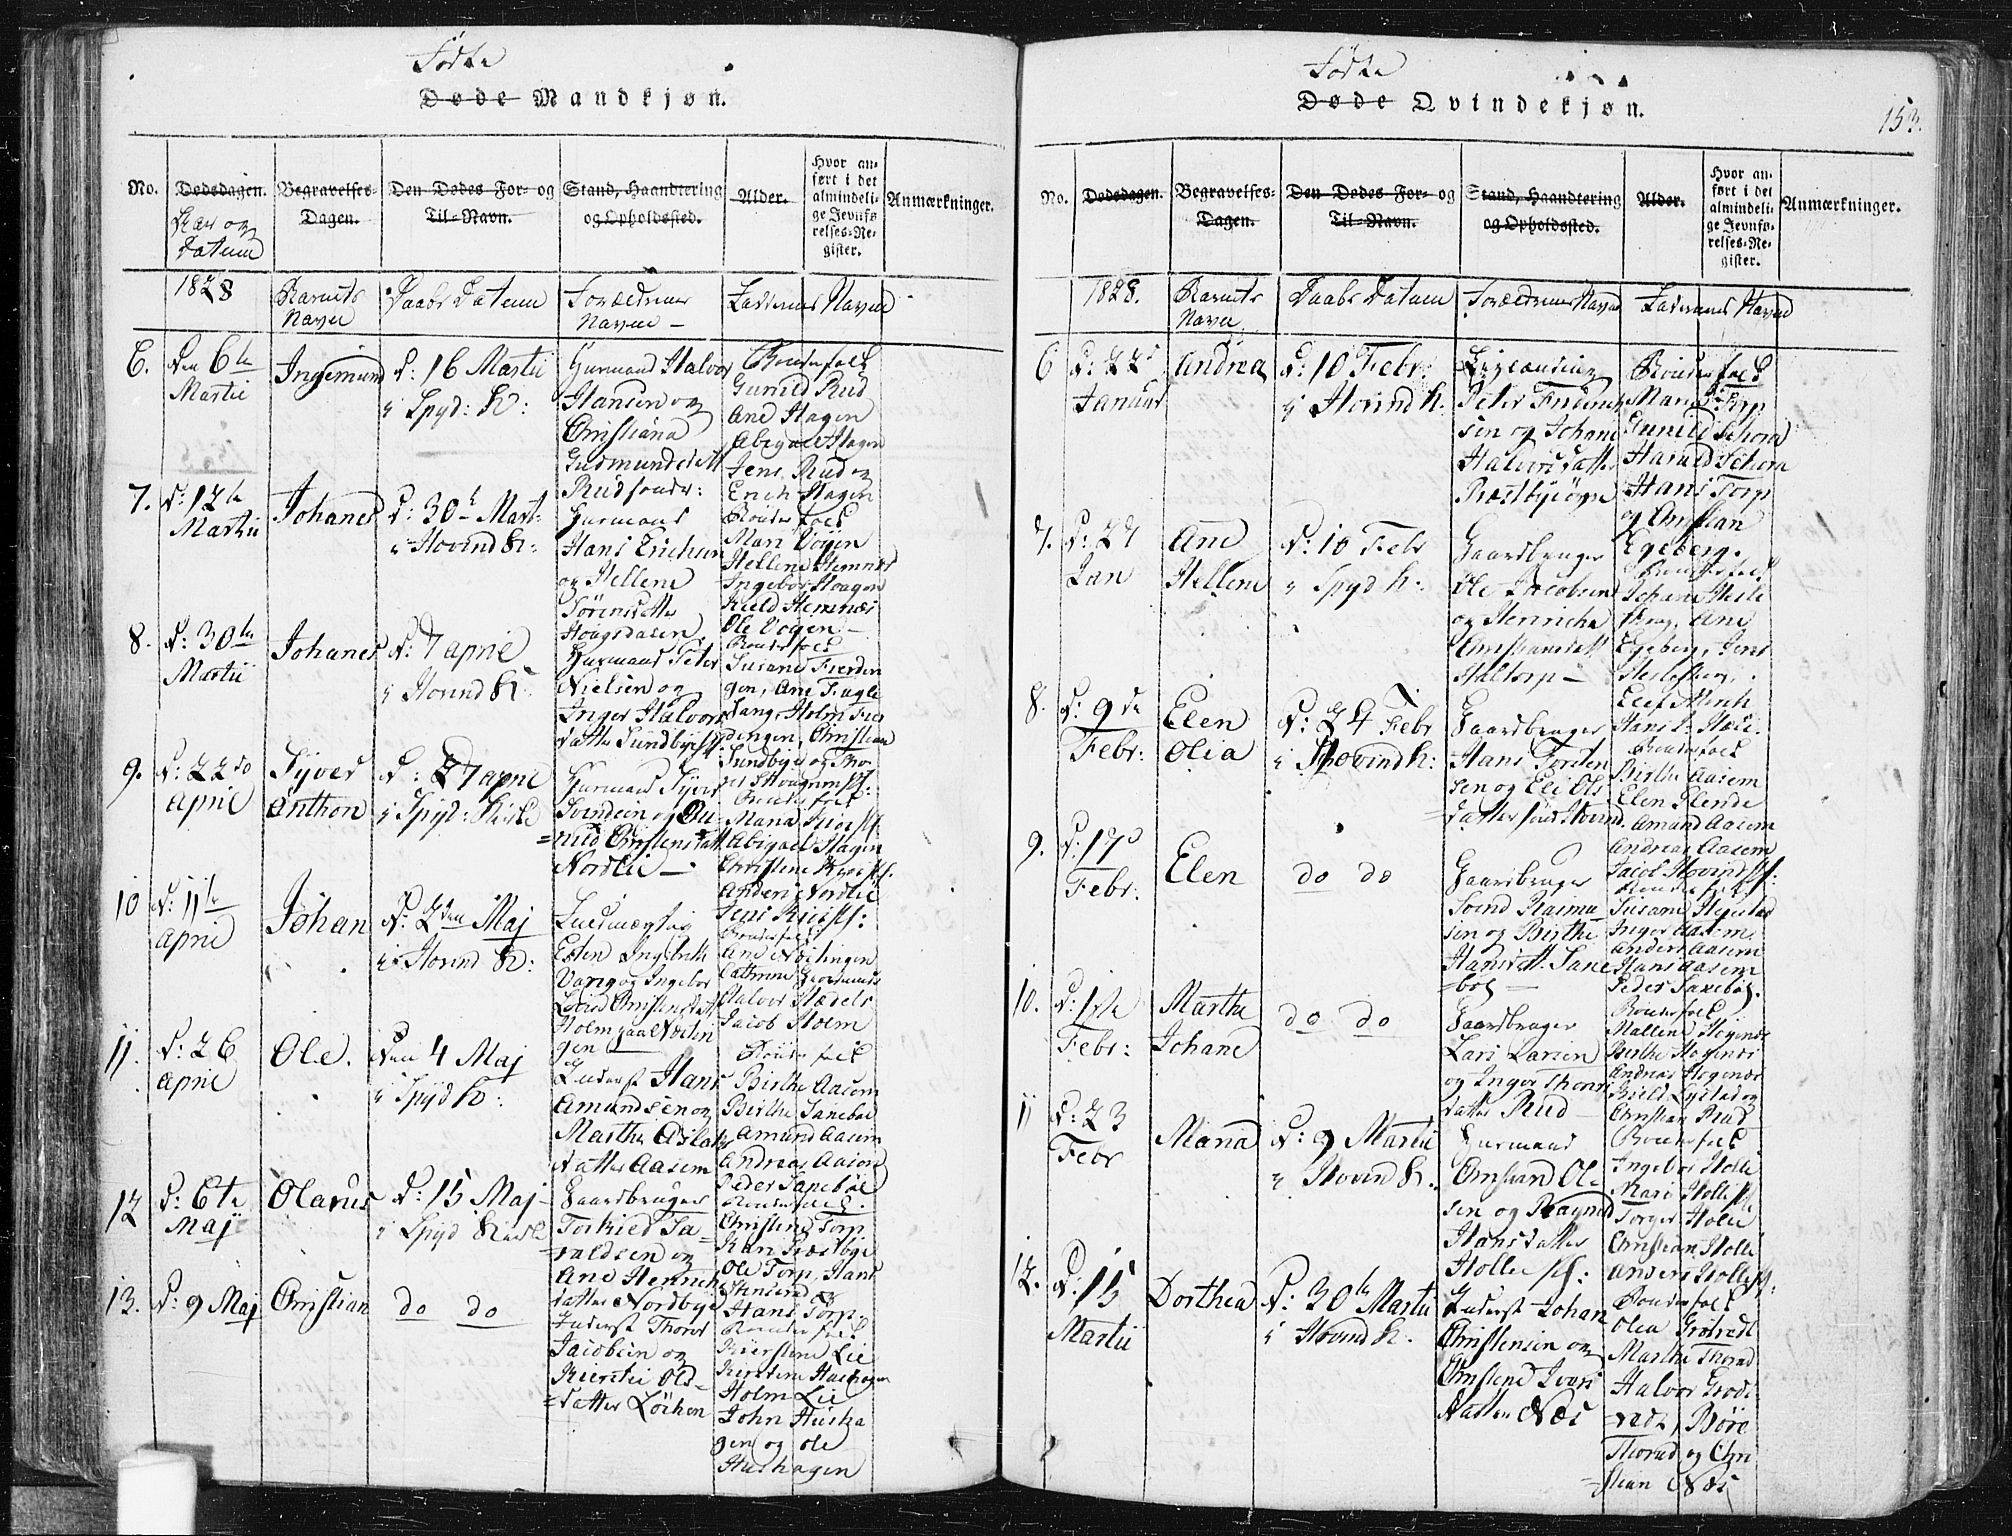 Fødte
Døde Mandkjøn.
No.
Dødsdagen.
Aar og
Datum
Begravelses-
Dagen.
Den Dødes For- og
Til-Navn.
Stand, Haandtering
og Opholdssted.
Alder.
Hvor an-
ført i det
almindeli-
ge Jevnfø-
relses-Re-
gister.
Anmærkninger.
1828
Barnets
Navn
Daabs Datum
Forældrenes
Navne
Faddernes Navne
6.
Den 6te
Martii
Ingemund
D: 16 Martii
i Spyd: K:
Huusmand Halvor
Hansen og
Christiana
Gudmundsdatt
Rudsonder:
Bønderfolk
Gunild Rud
Ane Hagen
Abigael Hagen
Jens Rud og
Erich Hagen
7.
D: 17te
Martii
Johanes
D: 30te Mart:
i Hovind K:
Huusmand
Hans Erichsen
og Hellene
Sørensdatter
Haagsdalen
Bønderfolk
Mari Vogen
Hellene Hemnæs
Ingebor Haagen
Kield Hemnæs
Ole Vogen
8.
D: 30te
Martii
Johanes
D: 7 April
i Hovind K:
Huusmand Peter
Nielsen og
Inger Halvors
datter Sundbye
Bønderfolk
Susane Fierdin
gen, Ane Fugle
sang, Holm Fier
dingen, Christian
Sundbye og Tho-
9.
D: 22de
April
Syver
Anthon
D: 27 April
i Spyd: Kirke
Huusmand Syver
Svendsen og Gu-
nild Christensdatt
Nordlie
Bønderfolk
Abigael Hagen
Anders Nordlie
10
D: 11te
April
Johan
D: 2den Maj
i Hovind K:
Christensdatt
Bønderfolk
Jacob Holm
11.
D: 26
April
Ole.
Den 4 Maj
i Spyd K:
Inderst Hans
Amundsen og
Marthe Aslaks
datter Aasem
Bønderfolk
Birthe Aasem
Birthe Sanebøl
Amund Aasem
Andreas Aasem
Peder Sanebøl
12
D: 6te
Maj
Olarus
D: 15 Maj
i Spyd Kirke
Gaardbruger
Torkild Ha-
raldsen og
Ane Henrichs
datter Nordbye
Bønderfolk
Christine Torp
Kari Præstbye
Ole Torp, Hans
Stensrud
Hans Torp
13.
D: 9 Maj
Christian
do do
Inderst Thored
Jacobsen og
Kierstie Ols-
datter Løchen
Bønderfolk
Kierstine Lie
Kierstine Hushagen
Holm Lie
John Husha
gen og Ole
Hushagen
Fødte
Døde Qvindekjøn.
153.
No.
Dødsdagen.
Begravelses-
Dagen.
Den Dødes For- og
Til-Navn.
Stand, Haandtering
og Opholdssted.
Alder.
Hvor an-
ført i det
almindeli-
ge Jevnfø-
relses-Re-
gister.
Anmærkninger.
1828.
Barnets
Navn
Daabs Datum
Forældrenes Navne
Faddernes Navne
6
D: 22d
Januar
Andrea
D: 10 Febr:
i Hovind K:
Peter Frederich
sen og Johane
Halvorsdatter
Præstbyeøgn
Bønderfolk
Maria Torp
Gunild Schorn
Harald Schorn
Hans Torp
og Christian
Egeberg.
7.
D: 27
Jan
Ane
Hellene
D: 10 Febr
i Spyd K:
Gaardbruger
Ole Jacobsen
og Henricha
Christiansdatt
Haltorp
Bønderfolk
Johane Hesle
berg, Ane
Egeberg, Jens
Heslesberg,
8.
D: 9de
Febr:
Elen
Olia
D: 24 Febr
i Hovind K:
Gaardbruger
Hans Torsten
sen og Eli Ols
datter
Bønderfolk
Birthe Aasem
Elen Glende
Amund Aasem
Andreas Aasem
9.
D: 17d
Febr:
Elen
do do
Gaardbruger
Svend Rasmu-
sen og Birthe
Hansdatt: Sane
bøl
Bønderfolk
Inger Aasem
Anders Aasem
Hans Aasem
Peder Sanebøl.
10.
Febr:
Marthe
Johane
do do
Gaardbruger
Lars Larsen
og Inger Thors
datter Rud
Bønderfolk
Mallene Hogenæs
Birthe Hogenæs
Andreas Hogenæs
Christian Rud
11
D: 23
Febr
Maria
D: 9 Martii
i Hovind K:
Huusmand
Christian Ole
sen og Ragnild
Hansdatter
Holle
Bønderfolk
Ingebor Holle
Mari Holle
Torger Holle
Christian Holle
Anders Holle
12.
D: 15
Martii
Dorthea
D: 30te Martii
i Hovind K.
Inderst Johan
Christensen og
Christine Ivers
datter Næs
Bønderfolk
Olea Grøtvedt
Marthe Thorud
Halvor Grødt
vedt, Børe
Thorud og Chri
stian Næs